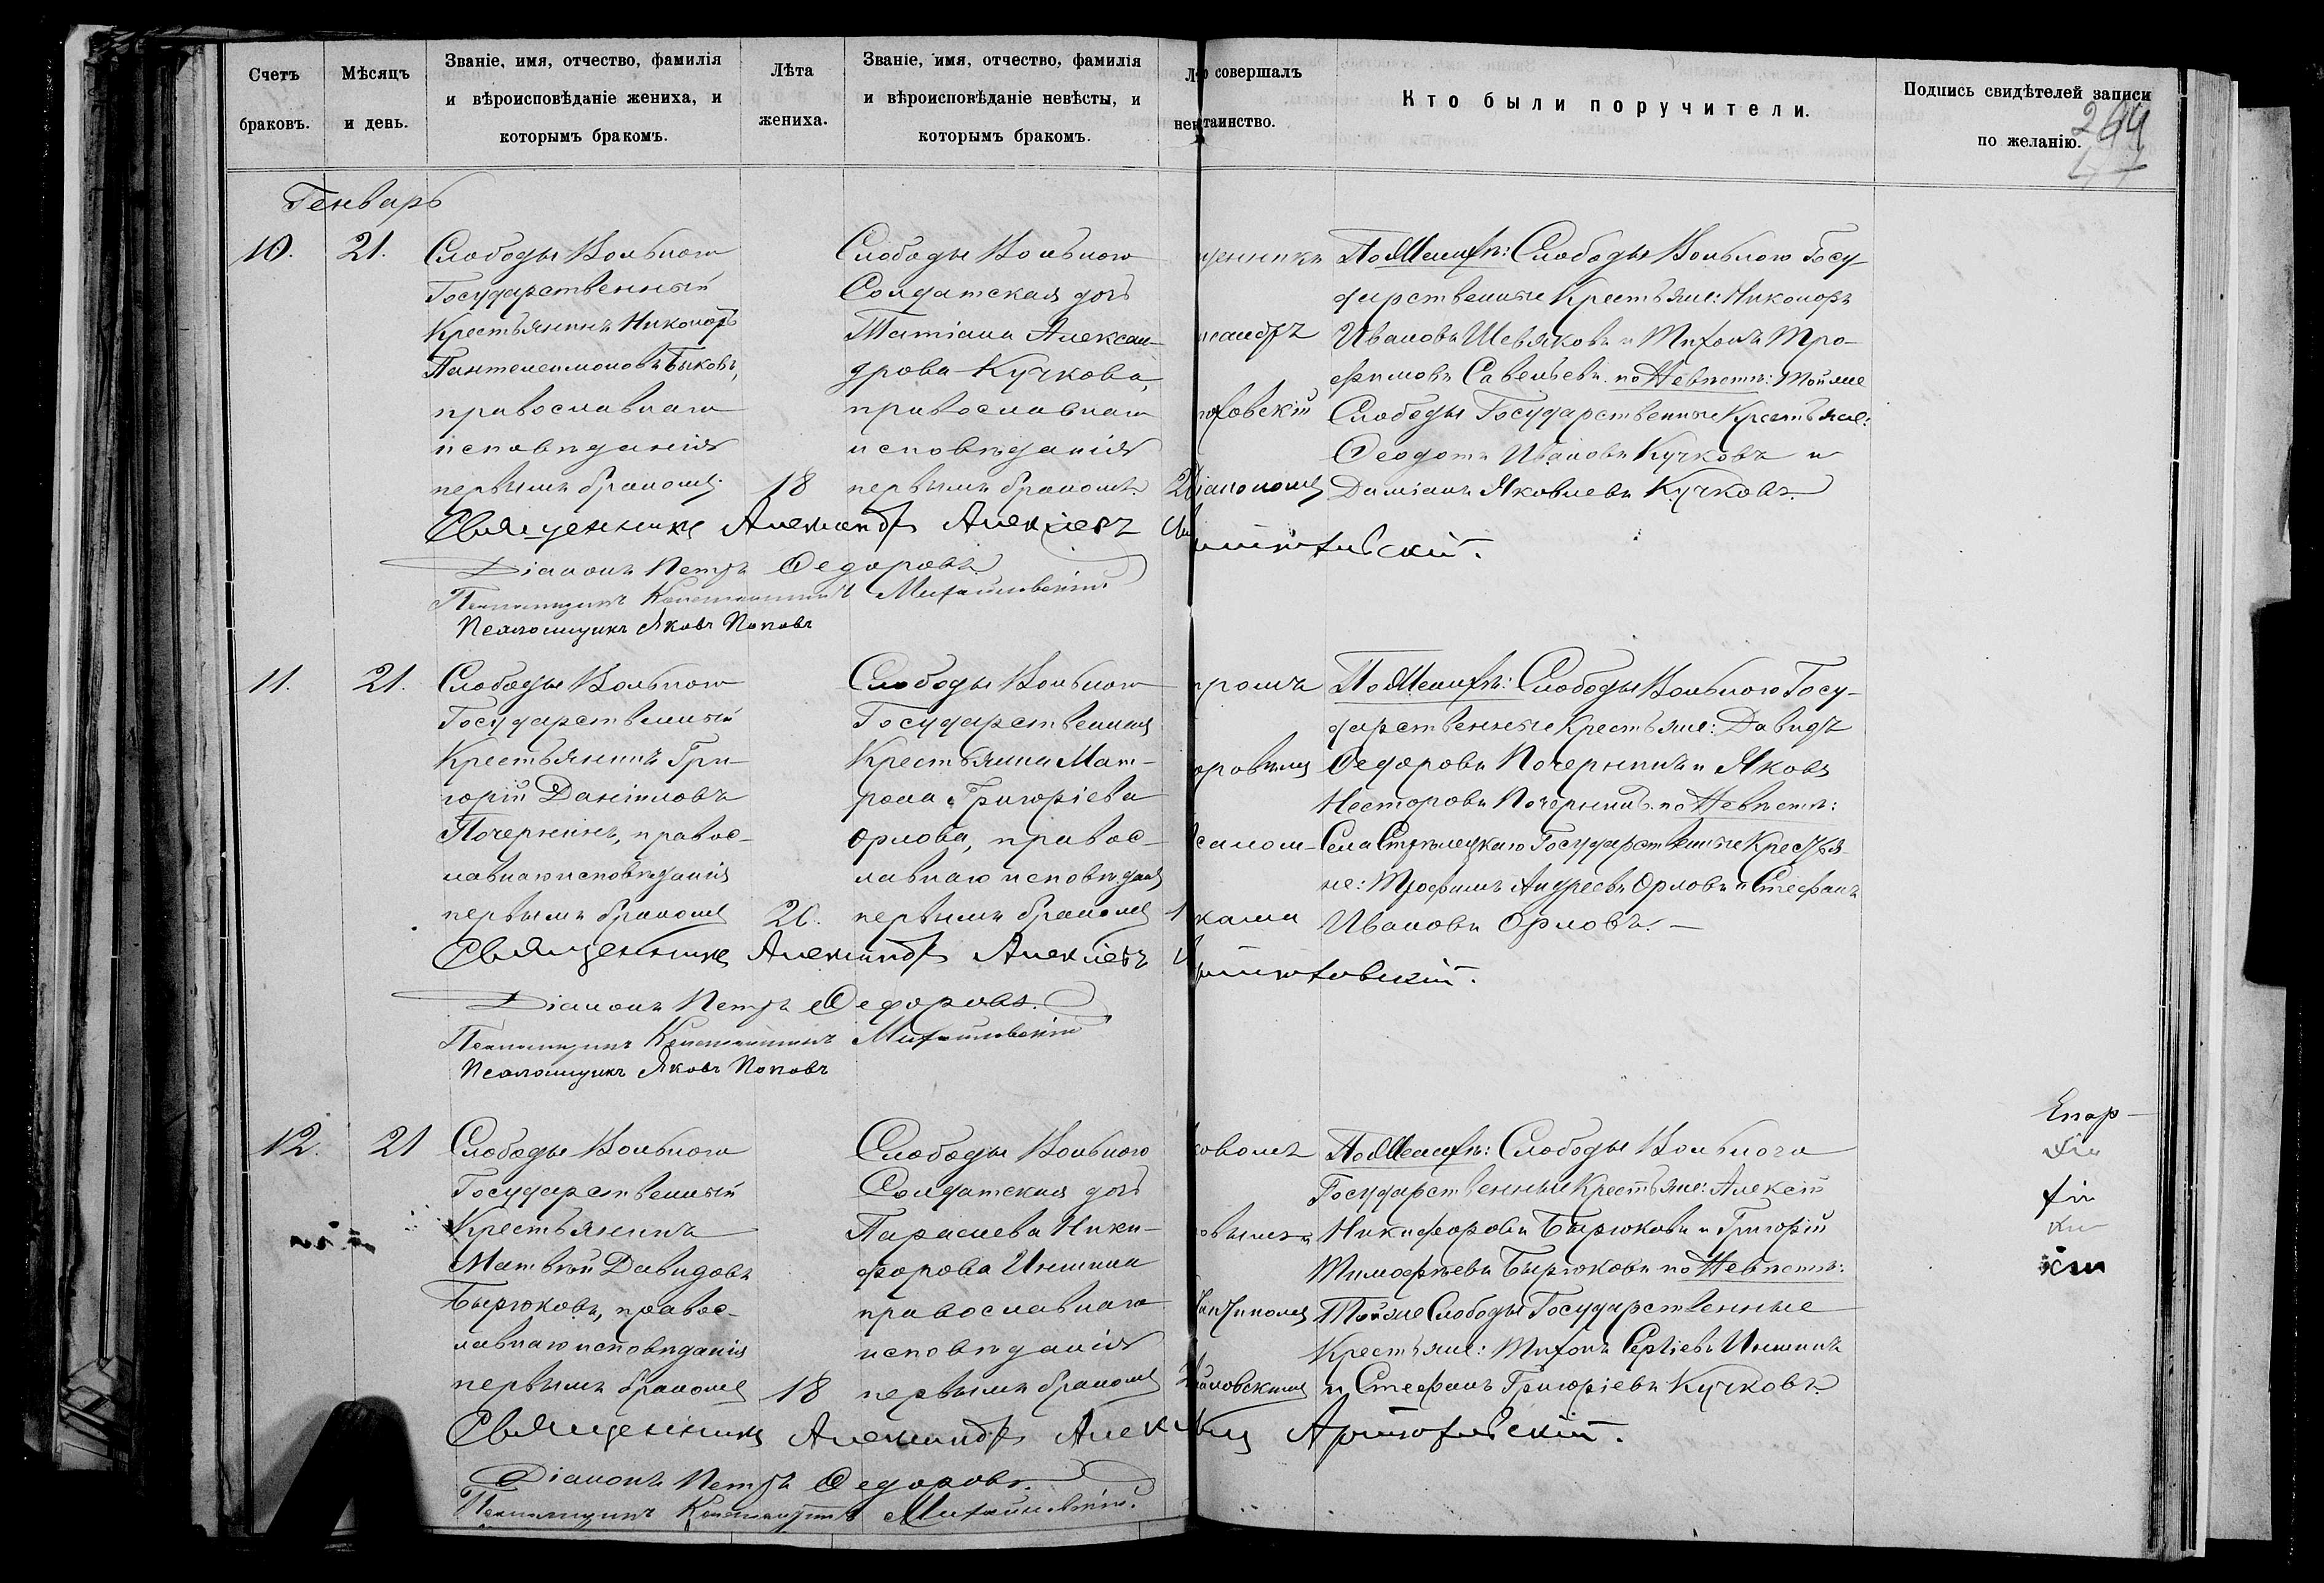 Счетъ браковъ.
Мѣсяцъ и день.
Званіе, имя, отчество, фамилія
и вѣроисповѣданіе жениха, и
которымъ бракомъ.
Лѣта
жениха.
Званіе, имя, отчество, фамилія
и вѣроисповѣданіе невѣсты, и
которымъ бракомъ.
совершалъ
таинство.
Кто были поручители.
Подпись свидѣтелей записи
по желанію.
264
Генварь
10.
21.
Слободы Вольного
Государственный
Крестьянинъ Никоноръ
Пантелеимоновъ Быковъ,
православнаго
исповѣданія
первымъ бракомъ.
18
Слободы Вольного
Солдатская дочь
Татіана Алексан-
дрова Кучкова,
православнаго
исповѣданія
первымъ бракомъ.
По Женихѣ: Слободы Вольного Госу-
дарственные Крестьяне: Никоноръ
Ивановъ Шевяковъ и Тихонъ Тро-
фимовъ Савельевъ. по Невѣстѣ: Той же
Слободы Государственные Крестьяне:
Ѳеодотъ Ивановъ Кучковъ и
Даміанъ Яковлевъ Кучковъ.
Священникъ Александръ Алексіевъ
Діаконъ Петръ Ѳедоровъ
Псаломщикъ Константинъ Михайловскій
Псаломщикъ Яковъ Поповъ
11.
21.
Слободы Вольного
Государственный
Крестьянинъ Гри-
горій Даніиловъ
Почернинъ, правос-
лавнаго исповѣданія
первымъ бракомъ
20.
Слободы Вольного
Государственная
Крестьянка Мат-
рона Григоріева
Орлова, правос-
лавнаго исповѣданія
первымъ бракомъ
По Женихѣ: Слободы Вольного Госу-
дарственные Крестьяне: Давидъ
Ѳедоровъ Почернинъ и Яковъ
Несторовъ Почернинъ. по Невѣстѣ:
Села Стрѣлецкаго Государственные Крестья-
не: Трофимъ Андреевъ Орловъ и Стефанъ
Ивановъ Орловъ.
Священникъ Александръ Алексіевъ
Діаконъ Петръ Ѳедоровъ.
Псаломщикъ Константинъ Михайловскій
Псаломщикъ Яковъ Поповъ
12.
21
Слободы Вольного
Государственный
Крестьянинъ
Матвѣй Давидовъ
Бырюковъ, правос-
лавнаго исповѣданія
первымъ бракомъ
18
Слободы Вольного
Солдатская дочь
Параскева Ники-
форова Иншина
православнаго
исповѣданія
первымъ бракомъ
По Женихѣ: Слободы Вольного
Государственные Крестьяне: Алексій
Никифоровъ Бырюковъ и Григорій
Тимофѣевъ Бырюковъ по Невѣстѣ:
Той же Слободы Государственные
Крестьяне: Тихонъ Сергіевъ Иншинъ
и Стефанъ Григоріевъ Кучковъ.
Священникъ Александръ
Діаконъ Петръ Ѳедоровъ.
Псаломщикъ Константинъ Михайловскій.